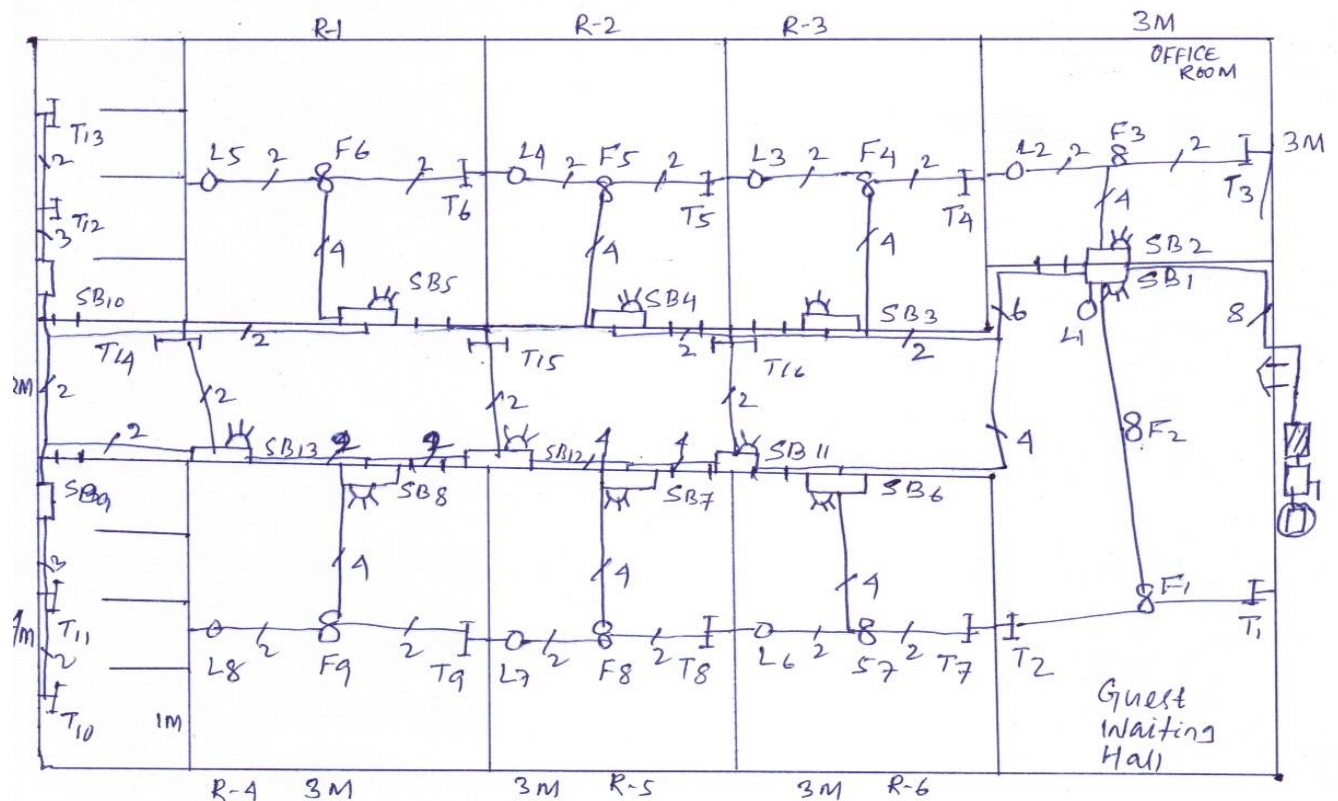 R-1 R-2 R-3 3M
OFFICE
ROOM
T13
2
L5 2 F6 2 T6
L4 2 F5 2 T5
L3 2 F4 2 T4
L2 2 F3 2 T3
3M
T12
3
4 4 4 4
SB10
SB5 SB4 SB3
SB2
SB1
L1
6 8
T14 2 T15 2 T16 2
2M 2
2 2 2
4
F2
2 SB13 2 2 SB12 4 4 SB11
SB9 SB8 SB7 SB6
3
4 4 4
T11
1m
2
T10
L8 2 F9 2 T9
L7 2 F8 2 T8
L6 2 57 2 T7
T2 F1 T1
1M
Guest
Waiting
Hall
R-4 3M 3M R-5 3M R-6